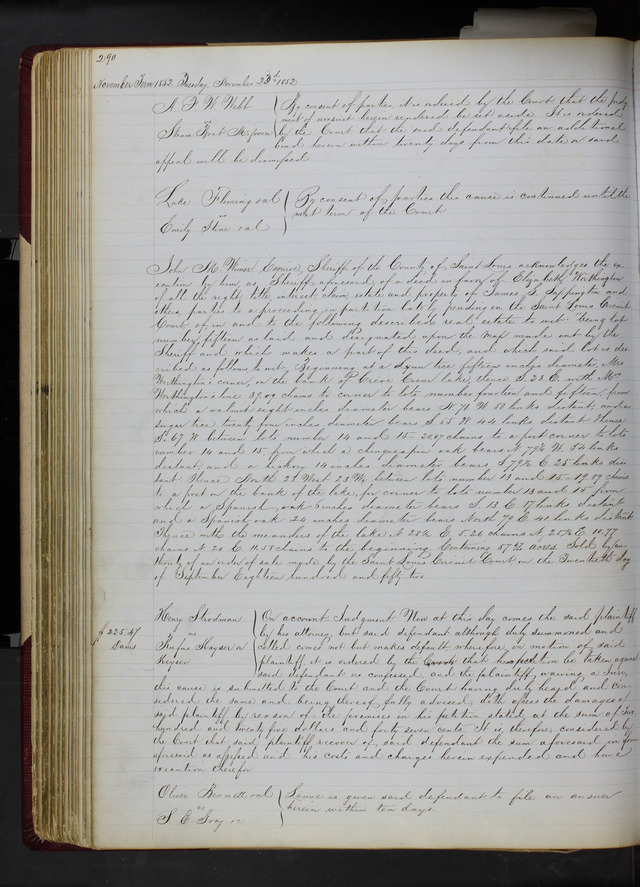 290
November Term 1852. Tuesday November 23d 1852
A F W Webb
vs
Steam Boat
By consent of parties it is ordered by the Court that the judg
ment of nonsuit herein rendered be set aside. It is ordered
by the Court that the said defendant file an additional
bond herein within twenty days from this date or said
appeal will be dismissed
Luke Fleming et al
vs
Emily Stine et al
By consent of parties this cause is continued until the
next term of the Court
John M. Wimer Esquire, Sheriff of the County of Saint Louis acknowledges the ex
ecution by him as Sheriff aforesaid of a deed in favor of Elizabeth Worthington
of all the right, title, interest, claim, estate and property of James S. Sappington and
others, parties to a proceeding in partition lately pending in the Saint Louis Circuit
Court of in and to the following described real estate to wit: being lot
number fifteen as laid and designated upon the map made out by the
Sheriff and which makes a part of this deed, and which said lot is des
cribed as follows to wit: Beginning at a stone fifteen inches diameter, Mrs
Worthington's corner, on the bank of Creve Coeur lake, thence S. 23 E. with Mrs
Worthington's line 39.09 chains to corner to lots number fourteen and fifteen, from
which a walnut eight inches diameter bears N 71 W 58 links distant, and a
sugar tree twenty four inches diameter bears S 55 W 44 links distant Thence
S. 67 W between lots number 14 and 15 - chains to a post corner to lots
number 14 and 15 from which a chinquapin oak bears N 79½ W. 54 links
distant, and a hickory 14 inches diameter bears S 79½ E 25 links dis
tant Thence North 23 West 23 W between lots number 13 and 15 - 19.07 chains
to a post on the bank of the lake, for corner to lots number 13 and 15 from
which a Spanish oak 6 inches diameter bears S 13 E 17 links distant
and a Spanish oak 24 inches diameter bears North 79 E 40 links distant
Thence with the meanders of the lake N 28½ E 5.26 chains N 25½ E 10.77
chains N 20 E 11.58 chains to the beginning Containing 57 acres. Sold by au
thority of an order of sale made by the Saint Louis Circuit Court on the Twentieth day
of September Eighteen hundred and fifty two
$225.47
Dams
Henry Strodman
vs
Rufus Keyser a
Keyser
On account. Judgment Now at this day comes the said plaintiff
by his attorney, but said defendant although duly summoned and
called comes not but makes default wherefore, on motion of said
plaintiff, it is ordered by the Court that his petition be taken against
said defendant as confessed, and the plaintiff waiving a Jury,
this cause is submitted to the Court and the Court having duly heard and con
sidered the same and being thereof fully advised, doth assess the damages of
said plaintiff by reason of the premises in his petition stated at the sum of Two
hundred and twenty five dollars and forty seven cents. It is, therefore, considered by
the Court that said plaintiff recover of said defendant the sum aforesaid in form
aforesaid as assessed and his costs and charges herein expended and have
execution therefor
Oliver Bennett et al
vs
S. E. Gray
Leave is given said defendant to file an answer
herein within ten days